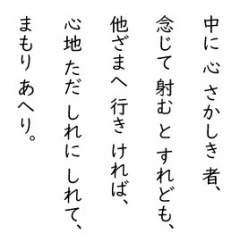 中に 心 さかしき 者、
念じて 射む と すれども、
他ざまへ 行き ければ、
心地 ただ しれに しれて、
まもり あへり。